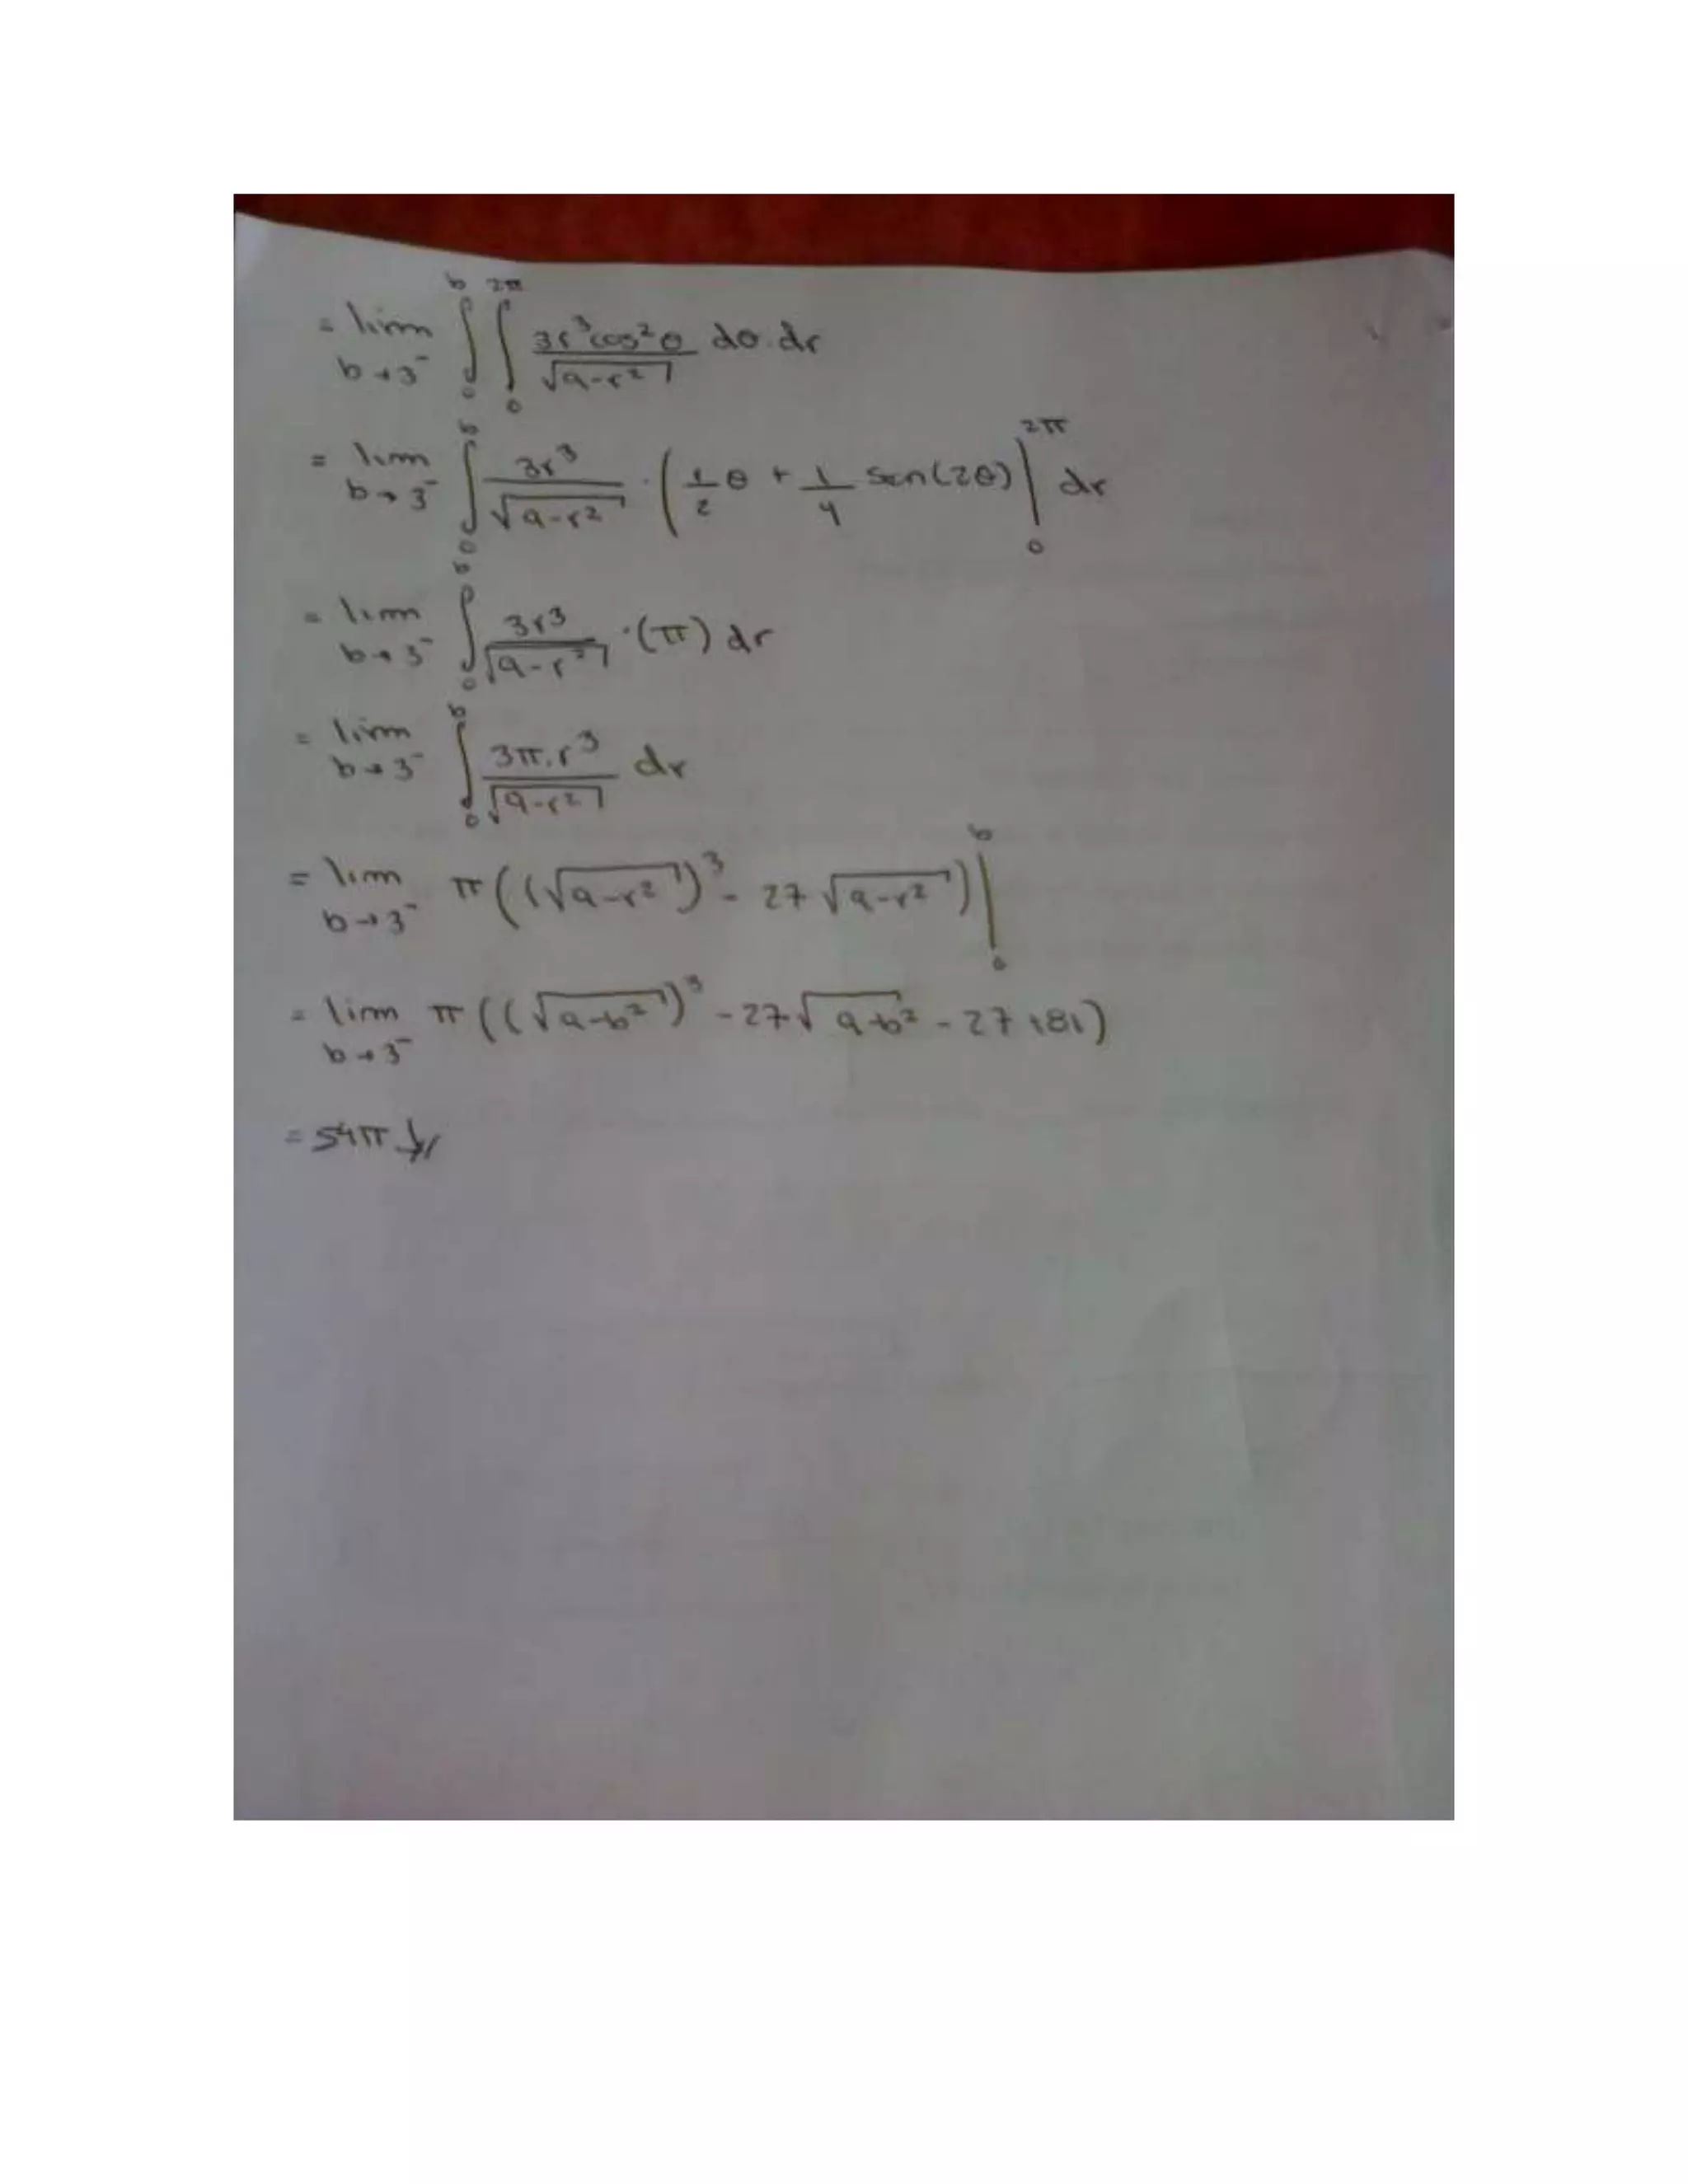 = lim b→3⁻ ∫₀ᵇ ∫₀^2π 3r³cos²θ / √(9-r²) dθ.dr
= lim b→3⁻ ∫₀ᵇ 3r³ / √(9-r²) · (1/2 θ + 1/4 Sen(2θ) |₀^2π dr
= lim b→3⁻ ∫₀ᵇ 3r³ / √(9-r²) ·(π) dr
= lim b→3⁻ ∫₀ᵇ 3π.r³ / √(9-r²) dr
= lim b→3⁻ π((√(9-r²))³ - 27√(9-r²))|₀ᵇ
= lim b→3⁻ π((√(9-b²))³ - 27√(9-b²) - 27+81)
= 54π